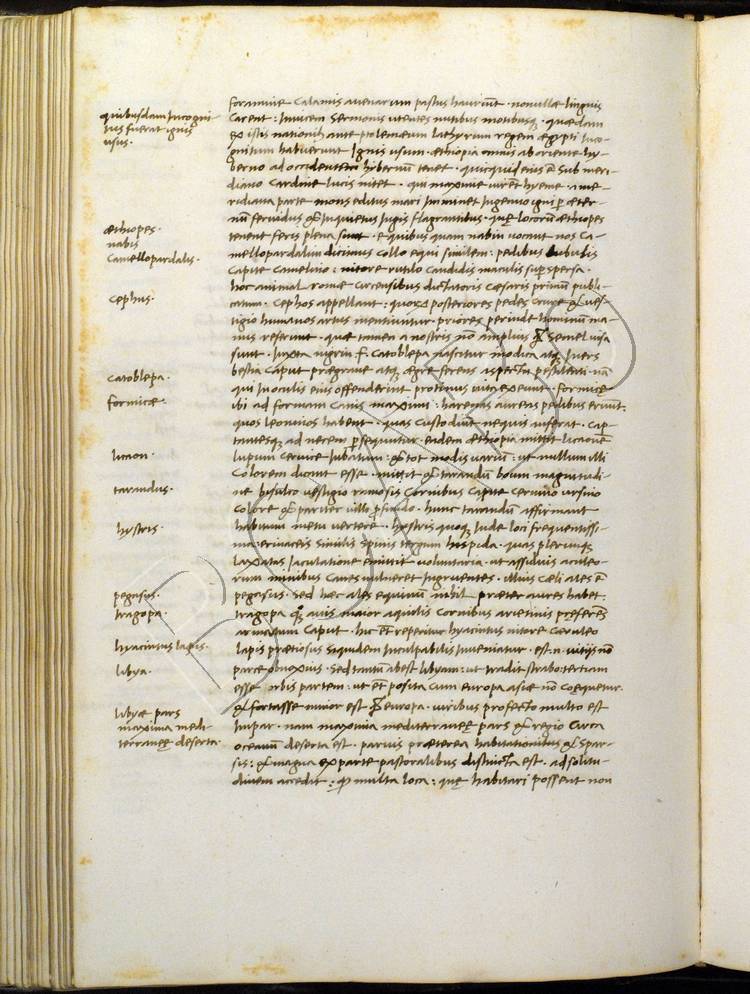 quibusdam Incogni-
tus fuerat ignis
usus.
æthiopes.
nabis
Camellopardalis.
cephus.
catoblepa.
formicæ.
licaon.
tarandus.
hystris.
pegasus.
tragopa.
hyacintus lapis.
libya.
libyæ pars
maxima medi-
terraneę deserta.
foramine Calamis avenarum pastus hauriūt. nonullæ linguis
Carent: Invicem Sermonis utentes nutibus motibusq. quædam
ex istis nationib ante ptolemæum lathyrum regem ægypti Inco-
gnitum habuerunt Ignis usum. æthiopia omnis ab oriente hy-
berno ad occidentem hybernū tenet. quicquid eius ē Sub meri-
diano Cardine lucis nitet. qui maxime viret hyeme. a me-
ridiana parte mons editus mari Imminet Ingenuo igni p æter-
nū fervidus & Inquietus Iugis flagrantibus. quę locorū æthiopes
tenent feris plena sunt. e quibus quam nabin vocant nos Ca-
mellopardalum dicimus collo equi similem: pedibus bubulis
Capite Camelino: nitore rutilo candidis maculis supspersa.
hoc animal romæ circensibus dictatoris cæsaris primū publi-
catum. Cephos appellant: quorꝝ posteriores pedes crure & ves-
tigio humanos artus mentiuntur. priores perinde hominū ma-
nus referunt. quæ tamen a nostris nō amplius ꝙ̄ Semel visa
sunt. Iuxta nigrin f. Catoblepa nascitur modica atq Iners
bestia Caput prægrave atq ægre ferens aspectu pestilenti. nā
qui In oculis eius offenderint protinus vitā exeunt. formicę
ibi ad formam Canis maximi: harenas aureas pedibus eruūt.
quos leoninos habent. quas custodiūt nequis auferat. Cap-
tantesq ad necem psequuntur. eadem æthiopia mittit licaonē
lupum Cervice Iubatum: & tot modis variū: ut nullum illi
Colorem dicant esse. mittit & tarandū boum magnitudi-
ne bisulco vestigio ramosis Cornibus Capite Cervino ursino
colore & pariter villo pfundo. hunc tarandū affirmant
habitum metu vertere. hystris quoq Inde loci frequentissi-
ma: erinaceis similis Spinis tergum hispida. quas plerunq
laxatas Iaculatione emittit voluntaria. ut assiduis aculeo-
rum nimbus Canes vulneret Ingruentes. illius cæli ales ē
pegasus. Sed hæc ales equinū nihil præter aures habet.
tragopa q̄; avis maior aquilis Cornibus arietinis præferēs
armatum Caput. hic ēt reperitur hyacintus nitore Ceruleo
lapis prætiosus siquidem Inculpabilis Inveniatur. est. n. vitijs nō
parce obnoxius. Sed tantū abest libyam: ut tradit strabo: tertiam
esse orbis partem: ut ēt posita cum europa asiæ nō coęquetur.
& fortasse minor est ꝙ̄ europa. viribus profecto multo est
Impar. nam maxima mediterraneę pars & regio Circa
oceanū deserta est. parvis præterea habitationibus & spar-
sis: & magna ex parte pastoralibus distincta est. ad solitu-
dinem accedit: ꝙ multa loca: quę habitari possent non